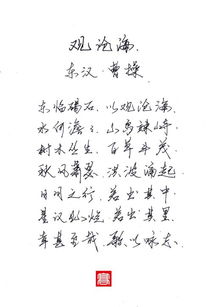 观沧海
东汉 曹操
东临碣石,以观沧海,
水何澹々,山岛竦峙,
树木丛生,百草丰茂,
秋风萧瑟,洪波涌起,
日月之行,若出其中,
星汉灿烂,若出其里,
幸甚至哉,歌以咏志.